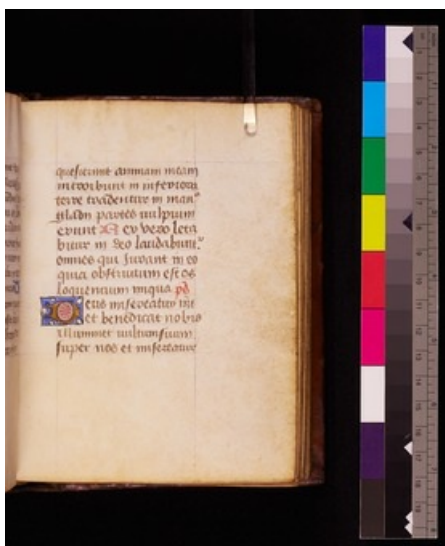 quesierunt animam meam
introibunt in inferiora
terre tradentur in man⁹
gladii partes vulpium
erunt Rex vero leta
bitur in deo laudabunt᷑
omnes qui iurant in eo
quia obstructum est os
loquentium iniqua ps̄
Deus misereatur nr̄i
et benedicat nobis
illuminet vultum suum
super nos et misereatur